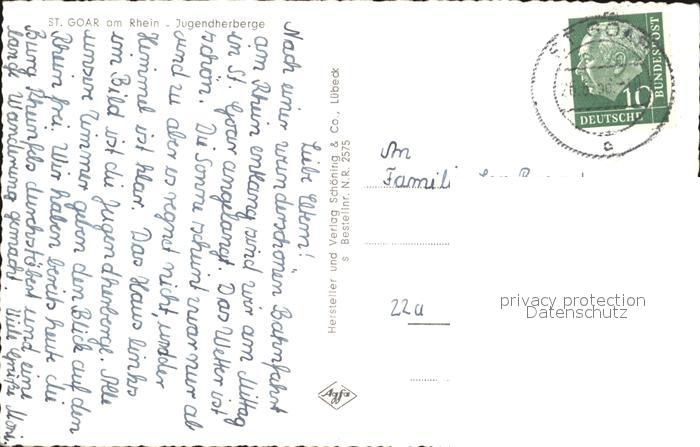 ST. GOAR am Rhein - Jugendherberge
Liebe Eltern!
Nach einer wunderschönen Bahnfahrt
am Rhein entlang sind wir am Mittag
in St. Goar angelangt. Das Wetter ist
schön. Die Sonne scheint zwar nur ab
und zu aber es regnet nicht, und der
Himmel ist klar. Das Haus links
im Bild ist die Jugendherberge. Alle
unsere Zimmer geben den Blick auf den
Rhein frei. Wir haben bereits heute die
Burg Rheinfels durchstöbert und eine
lange Wanderung gemacht. Viele Grüße
Hersteller und Verlag Schöning & Co., Lübeck
s Bestellnr. N.R. 2575
Agfa
ST. GOAR
a
10
DEUTSCHE
BUNDESPOST
An
Famili
22a
privacy protection
Datenschutz